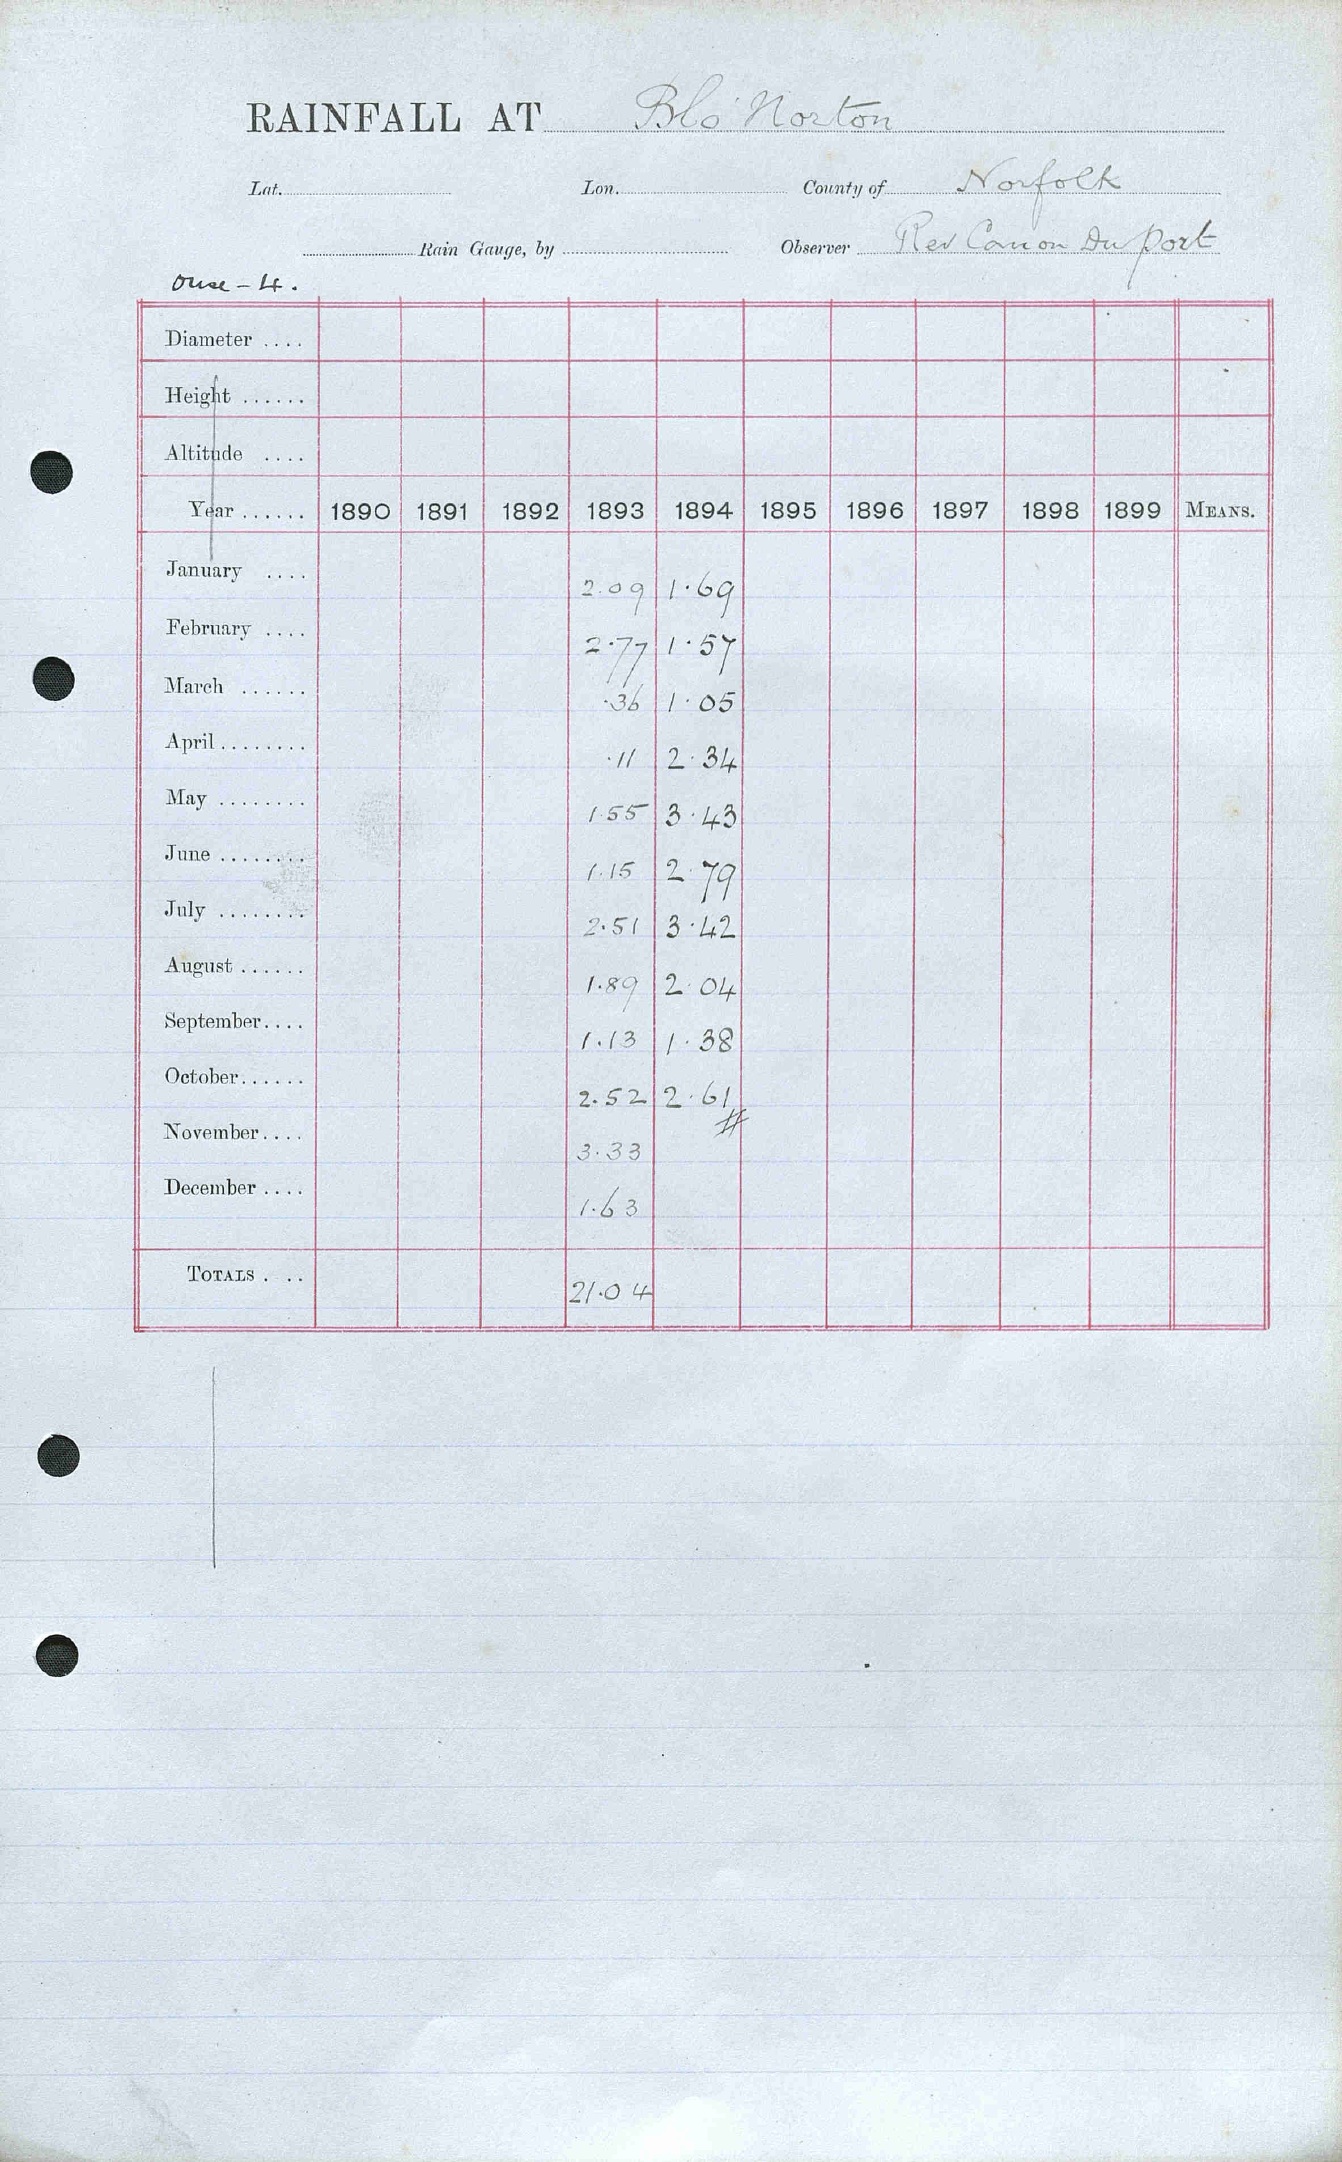 RAINFALL AT Blo' Norton
Lat. Lon. County of Norfolk
Rain Gauge, by Observer Rev Canon Du Port
Ouse - 4.
Diameter ....
Height ......
Altitude ....
Year ...... 1890 1891 1892 1893 1894 1895 1896 1897 1898 1899 MEANS.
January .... 2.09 1.69
February .... 2.77 1.57
March ...... .36 1.05
April ........ .11 2.34
May ........ 1.55 3.43
June ........ 1.15 2.79
July ........ 2.51 3.42
August ...... 1.89 2.04
September.... 1.13 1.38
October...... 2.52 2.61
#
November.... 3.33
December .... 1.63
TOTALS . .. 21.04